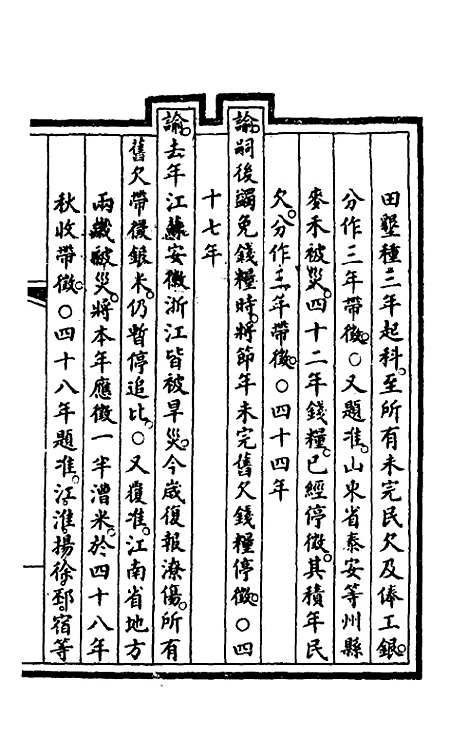 田墾種三年起科。至所有未完民欠及俸工銀。
分作三年帶徵。○又題准。山東省泰安等州縣
麥禾被災。四十二年錢糧。已經停徵。其積年民
欠。分作三年帶徵。○四十四年
諭。嗣後蠲免錢糧時。將節年未完舊欠錢糧停徵。○四
十七年
諭。去年江蘇安徽浙江皆被旱災。今歲復報潦傷。所有
舊欠帶徵銀米。仍暫停追比。○又覆准。江南省地方
兩歲被災。將本年應徵一半漕米。於四十八年
秋收帶徵。○四十八年題准。江淮揚徐邳宿等